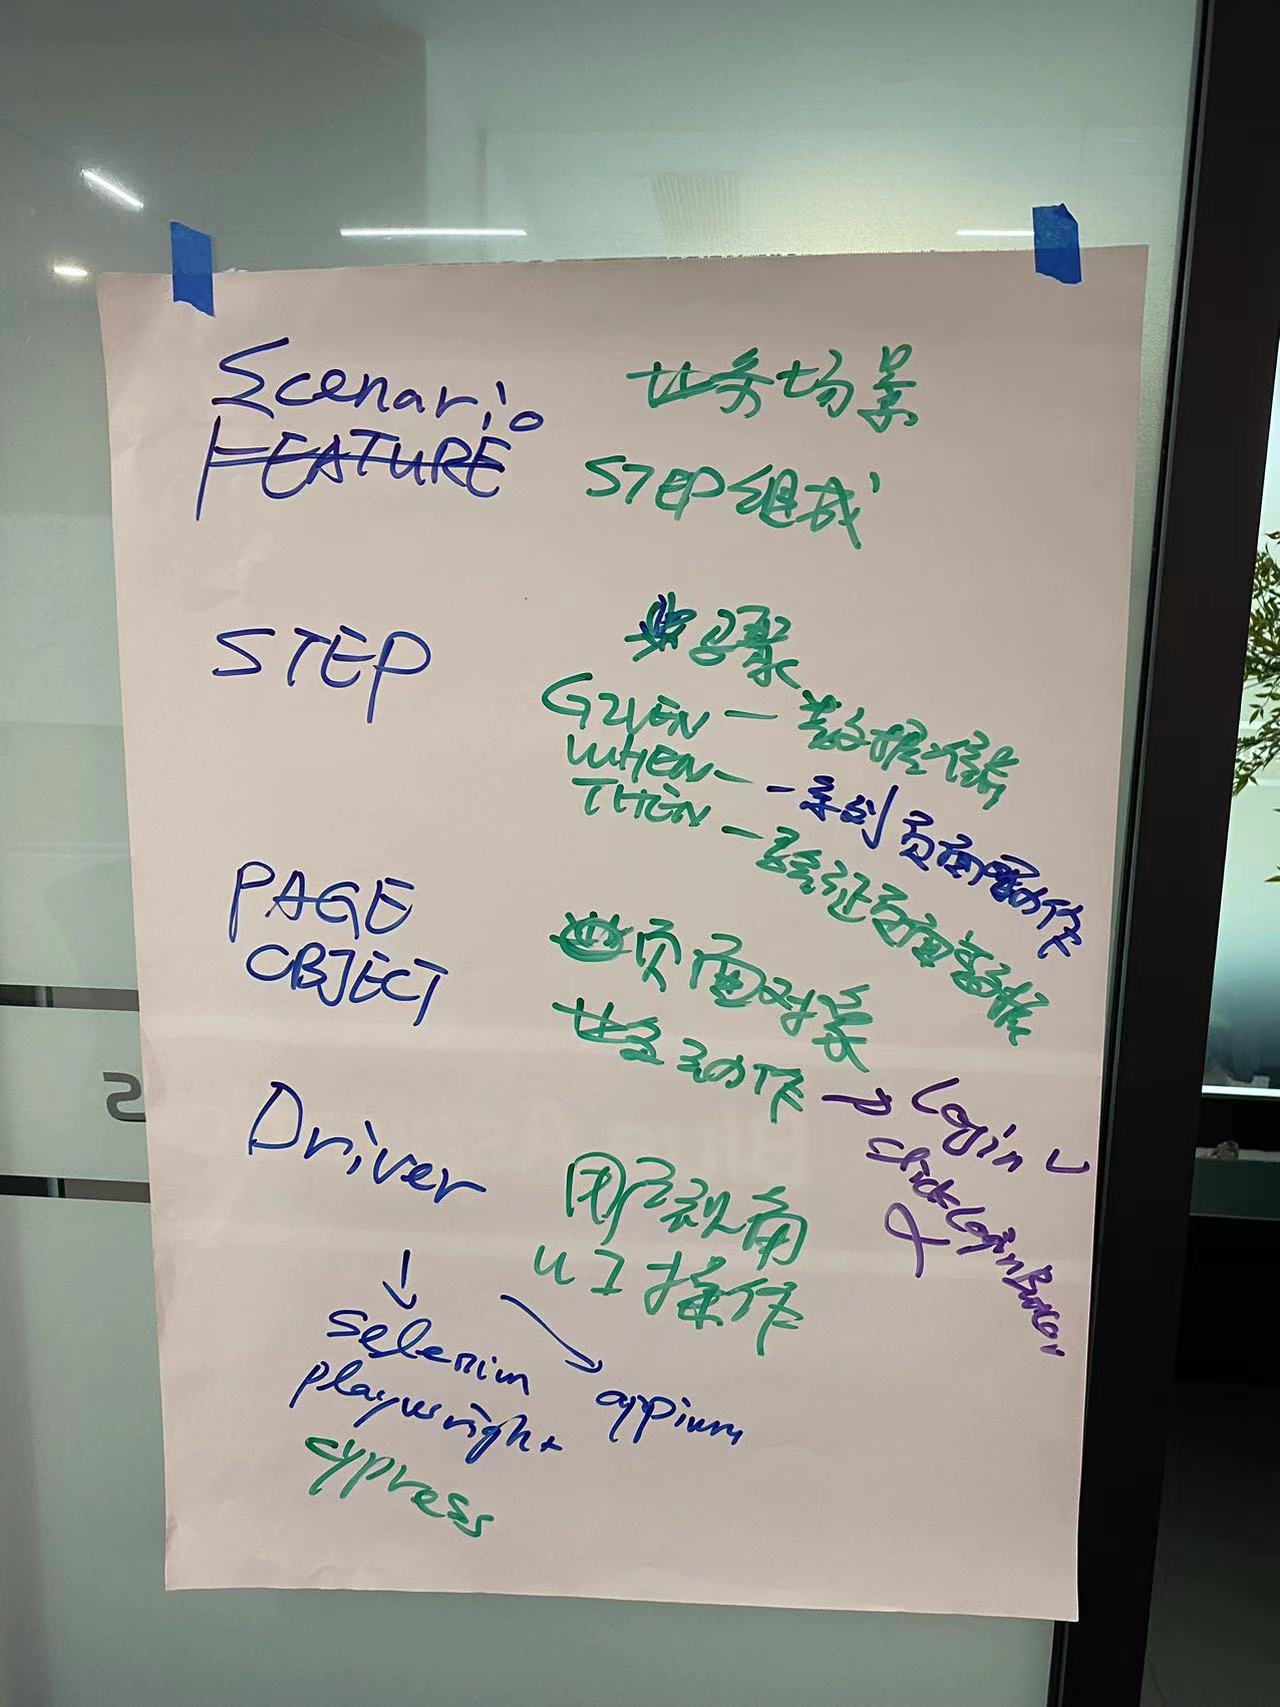 Scenario
业务场景
FEATURE
STEP组成
STEP
步骤
GIVEN — 数据准备
WHEN — 一系列页面动作
THEN — 验证页面数据
PAGE
OBJECT
页面对象
业务动作 → Login ✓
clickLoginButton
X
Driver
用户视角
UI操作
selenium
playwright
appium
cypress
S